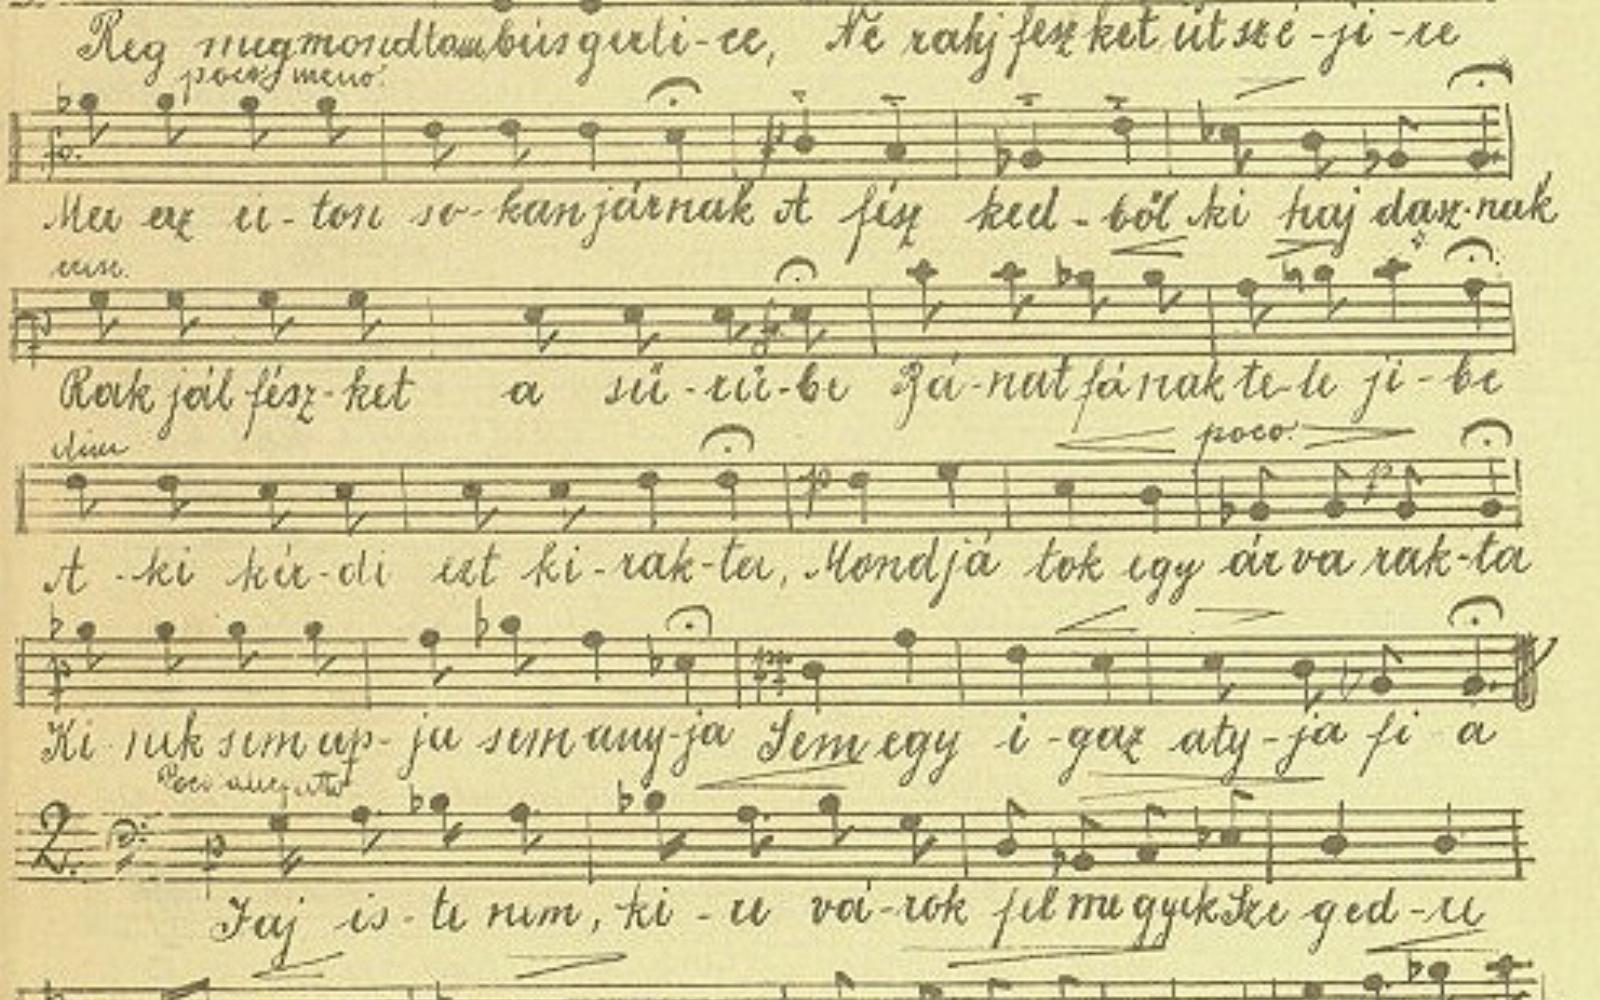 Rég megmondtam bús gerli-ce, Ne rakj fesz ket út szé-ji-re
poco meno.
Mer az u-ton so-kan járnak A fész ked-ből ki haj dasz-nak
Rak jál fész-ket a sű-rű-be Bá-nat fá nak te-le ji-be
dim
poco.
A-ki kér-di ezt ki-rak-ta, Mond já tok egy árva rak-ta
Ki nek sem ap-ja sem any-ja Sem egy i-gaz aty-ja fi a
2. p
Jaj is-te nem, ki-re vá-rok fel me gyek Sze ged-re